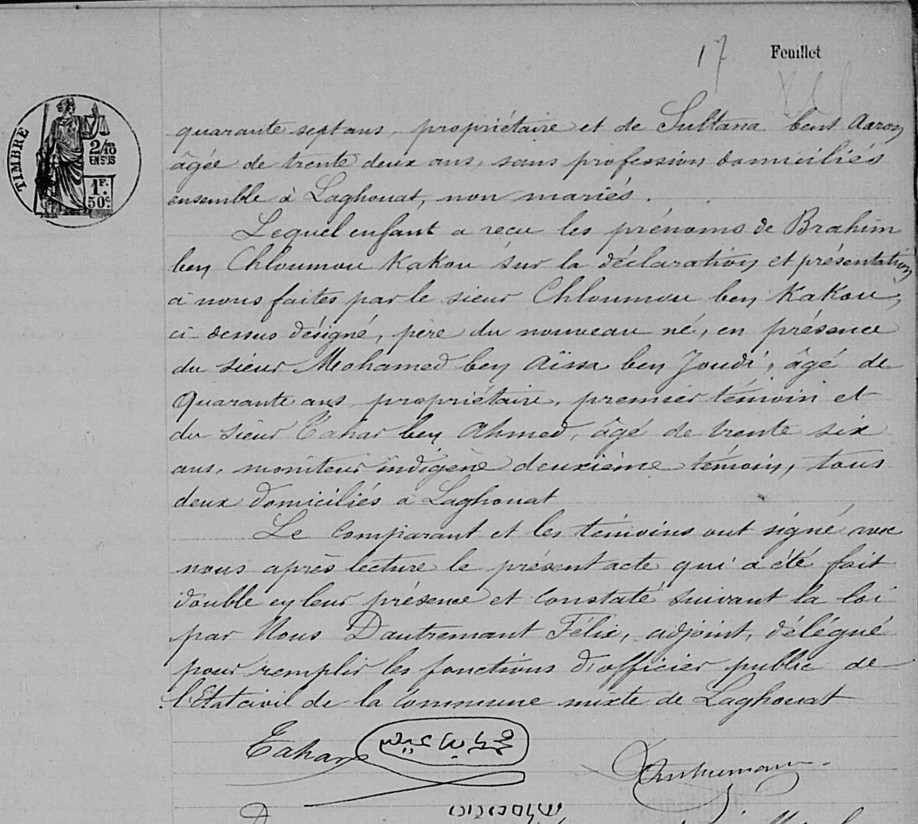 17 Feuillet
TIMBRE
2/10
EN SUS
1F.
50c
quarante sept ans, propriétaire et de Sultana bent Aaron
âgée de trente deux ans, sans profession domiciliés
ensemble à Laghouat, non mariés.
Lequel enfant a reçu les prénoms de Brahim
ben Chloumou Kakou sur la déclaration et présentation
à nous faites par le sieur Chloumou ben Kakou,
ci-dessus désigné, père du nouveau né, en présence
du sieur Mohamed ben Aïssa ben Joudi, âgé de
Quarante ans, propriétaire, premier témoin et
du sieur Tahar ben Ahmed, âgé de trente six
ans, moniteur indigène deuxième témoin, tous
deux domiciliés à Laghouat
Le Comparant et les témoins ont signé avec
nous après lecture le présent acte qui a été fait
double en leur présence et constaté suivant la loi
par Nous Dautremant Félix, adjoint, délégué
pour remplir les fonctions d'officier public de
l'Etat civil de la commune mixte de Laghouat
Tahar